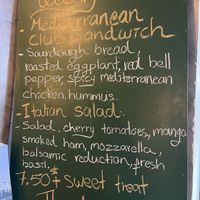 - Mediterranean
Club Sandwich
- Sourdough bread
roasted eggplant, red bell
pepper, spicy mediterranean
chicken, hummus.
- Italian salad.
- Salad, cherry tomatoes, mango
smoked ham, mozzarella,
balsamic reduction, fresh
basil.
7.50 Sweet treat